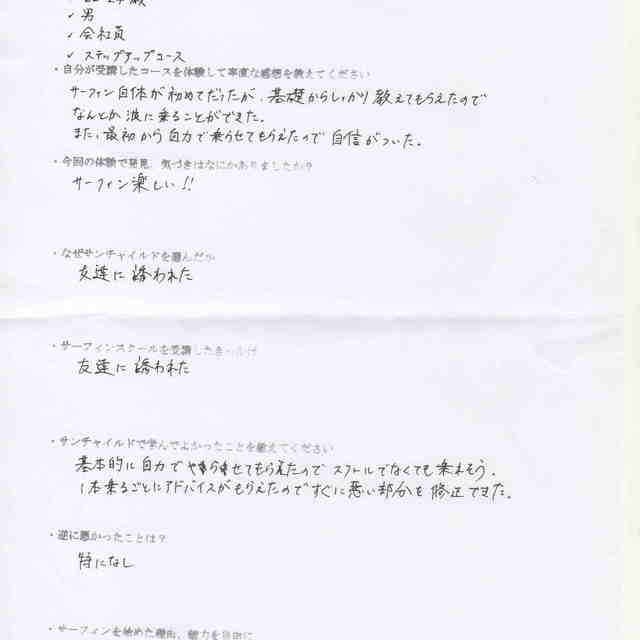 ✓ 男
✓ 会社員
✓ ステップアップコース
・自分が受講したコースを体験して率直な感想を教えてください
サーフィン自体が初めてだったが、基礎からしっかり教えてもらえたので
なんとか波に乗ることができた。
また、最初から自力で乗らせてもらえたので自信がついた。
・今回の体験で発見、気づきはなにかありましたか?
サーフィン楽しい!!
・なぜサンチャイルドを選んだか
友達に誘われた
・サーフィンスクールを受講したきっかけ
友達に誘われた
・サンチャイルドで学んでよかったことを教えてください
基本的に自力でやらせてもらえたのでスクールでなくても乗れそう。
1本乗るごとにアドバイスがもらえたのですぐに悪い部分を修正できた。
・逆に悪かったことは?
特になし
・サーフィンを始めた理由、魅力を自由に